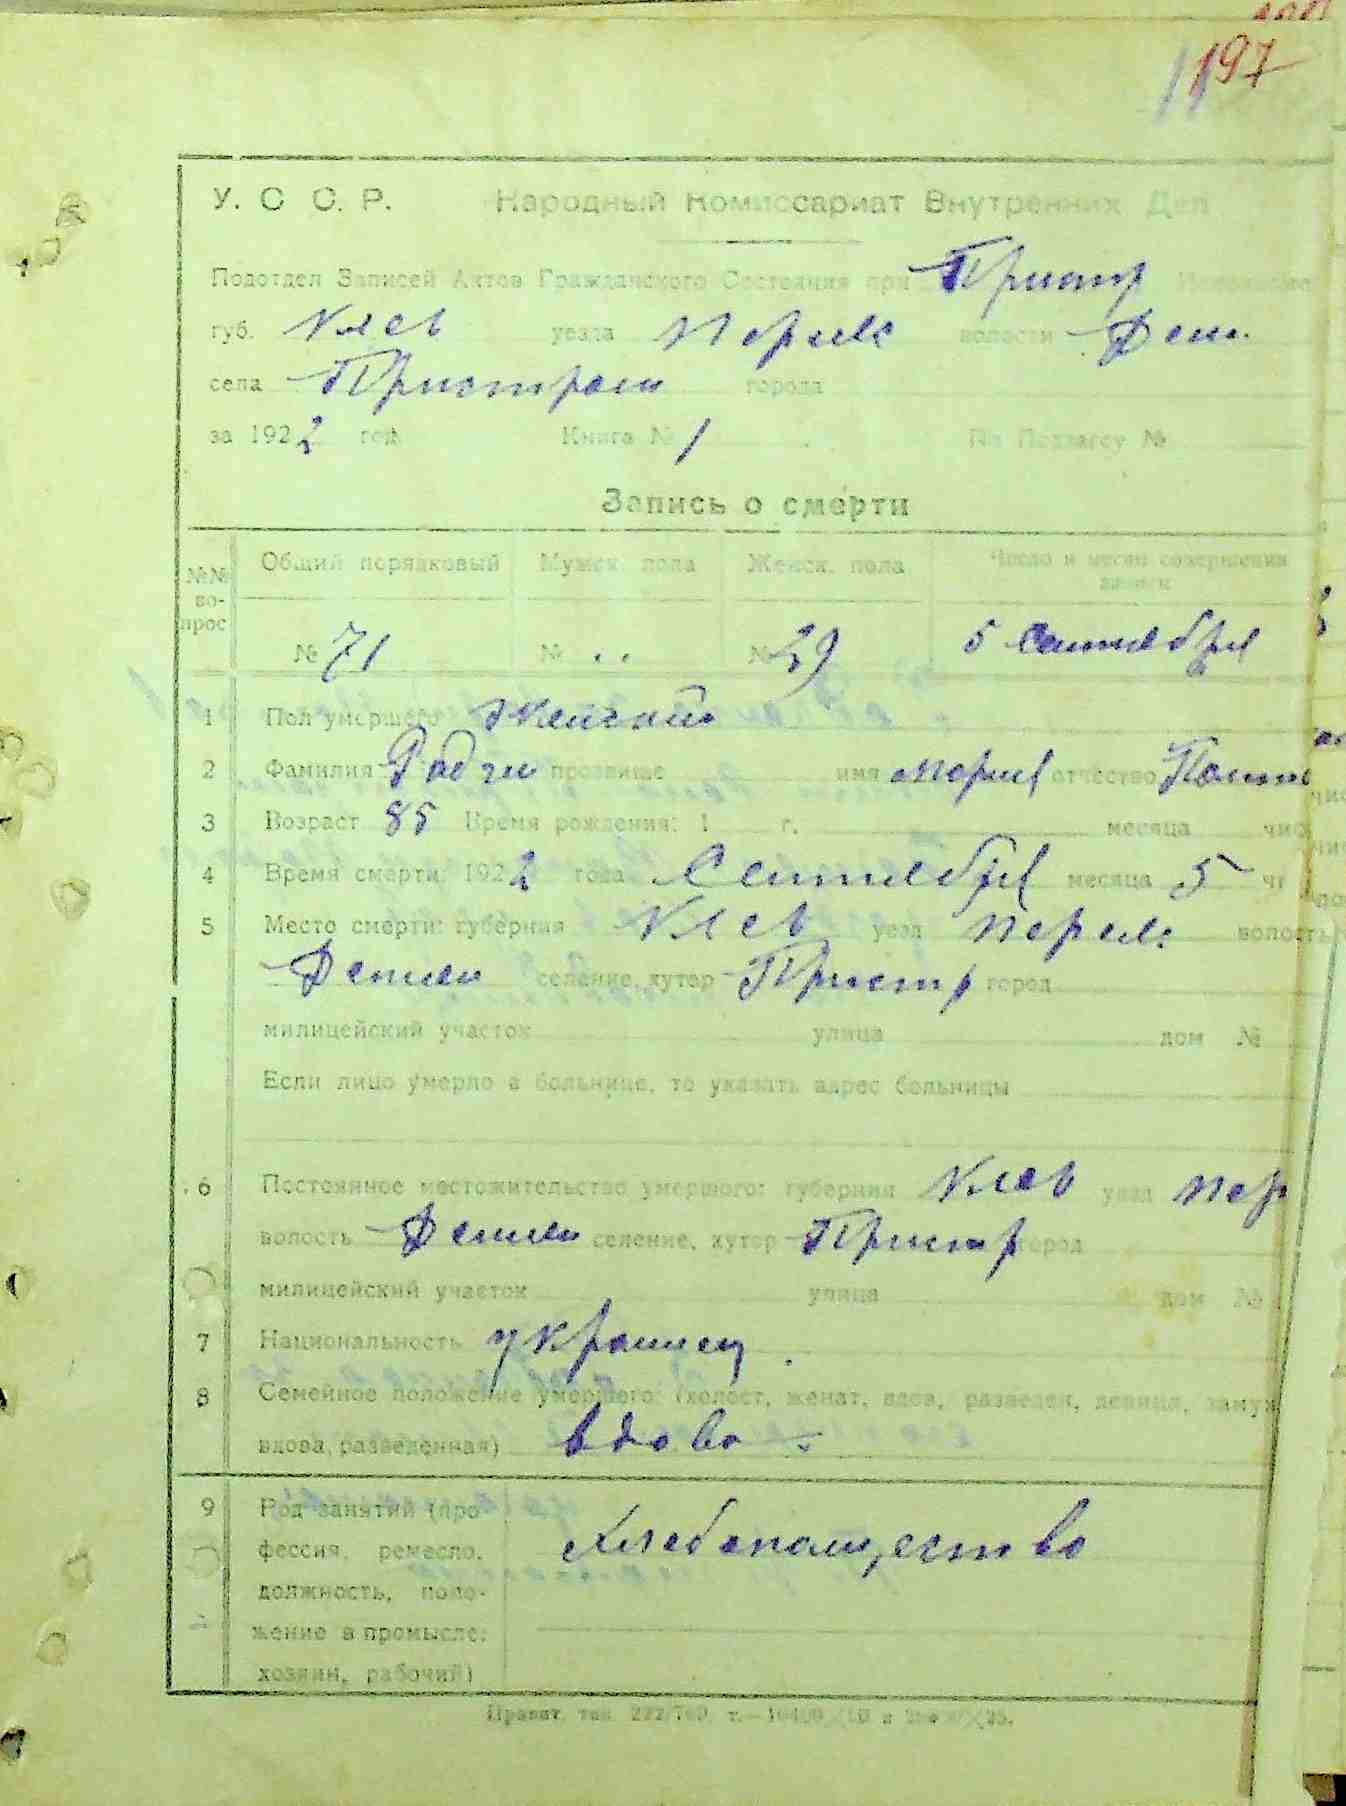 197
У. С С. Р. Народный Комиссариат Внутренних Дел
Подотдел Записей Актов Гражданского Состояния при Пристр
губ. Киев уезда Переяс волости Дем.
села Пристром города
за 1922 год Книга № 1 По Подзагсу №
Запись о смерти
№№ во-прос Общий порядковый Мужск. пола Женск. пола Число и месяц совершения записи
№ 71 № .. № 29 5 Сентября
1 Пол умершего Женский
2 Фамилия прозвище имя Мария отчество
3 Возраст 85 Время рождения: 1 г. месяца чис
4 Время смерти: 1922 года Сентября месяца 5 чи
5 Место смерти: губерния Киев уезд Переяс волость
Демян селение, хутор Пристр город
милицейский участок улица дом №
Если лицо умерло в больнице, то указать адрес больницы
6 Постоянное местожительство умершого: губерния Киев уезд Пер
волость Демян селение, хутор Пристр город
милицейский участок улица дом №
7 Национальность украинец
8 Семейное положение умершего: (холост, женат, вдов, разведен, девица, замуж
вдова, разведенная) вдова
9 Род занятий (про-
фессия, ремесло, Хлебопашество
должность, поло-
жение в промысле:
хозяин, рабочий)